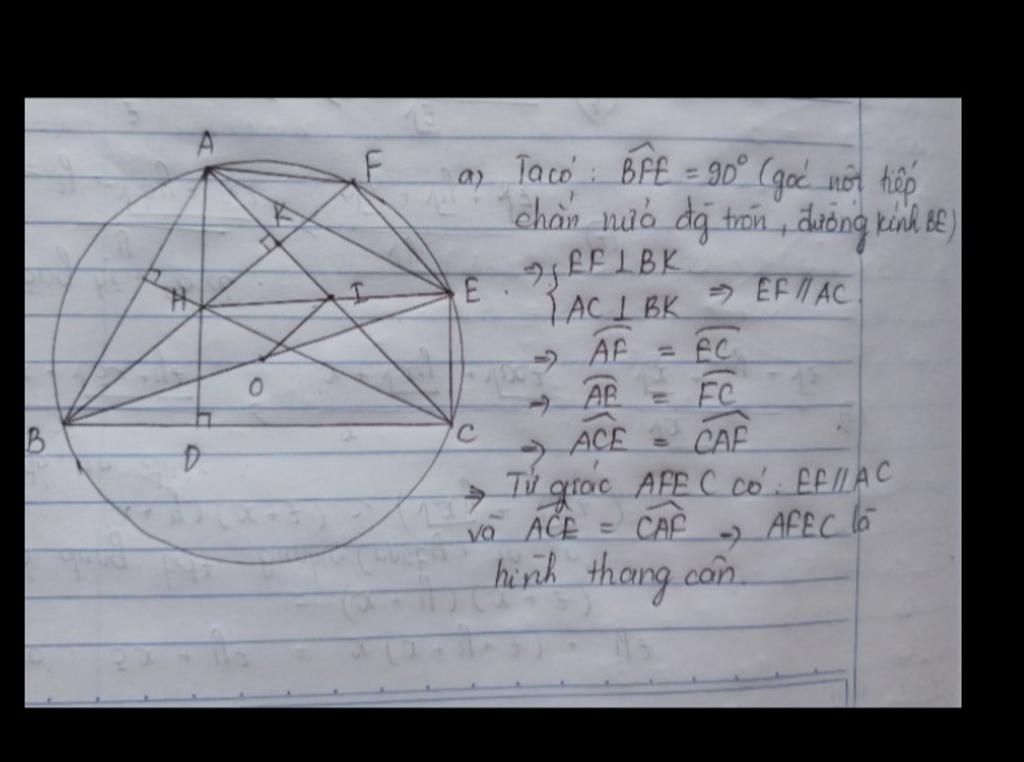 A
F
K
H
I
E
O
B
D
C
a, Ta có : BFE = 90° (góc nội tiếp
chắn nửa đg tròn, đường kính BE)
⇒ { EF ⊥ BK
AC ⊥ BK ⇒ EF // AC.
⇒ AF = EC
⇒ AE = FC
⇒ ACE = CAF
⇒ Tứ giác AFEC có : EF // AC
và ACE = CAF ⇒ AFEC là
hình thang cân.